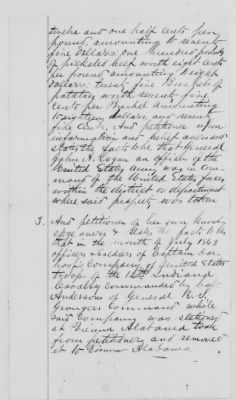 twelve and one half cents per
pound, amounting to seventy
five dollars; one hundred pounds
of pickeled beef worth eight cents
per pound amounting to eight
dollars; twenty five Bushels of
potatoes worth seventy
cents per Bushel amounting
to eighteen dollars, and seventy
five cents, And petitioner upon
information and belief avers and
states the facts to be, that General
John A. Logan an officer of the
United States Army was in com-
mand of the United States forces
within the district or department
where said property was taken
3. And petitioner of her own knowl-
edge avers & states the facts to be,
that in the month of July 1863
officers & soldiers of Captain
troops company of United States
troops of the 12th Indiana
Cavalry commanded by Col.
Anderson of General R. S.
Grangers command while
said company was stationed
at Vienna Alabama took
from petitioner and
at Vienna Alabama